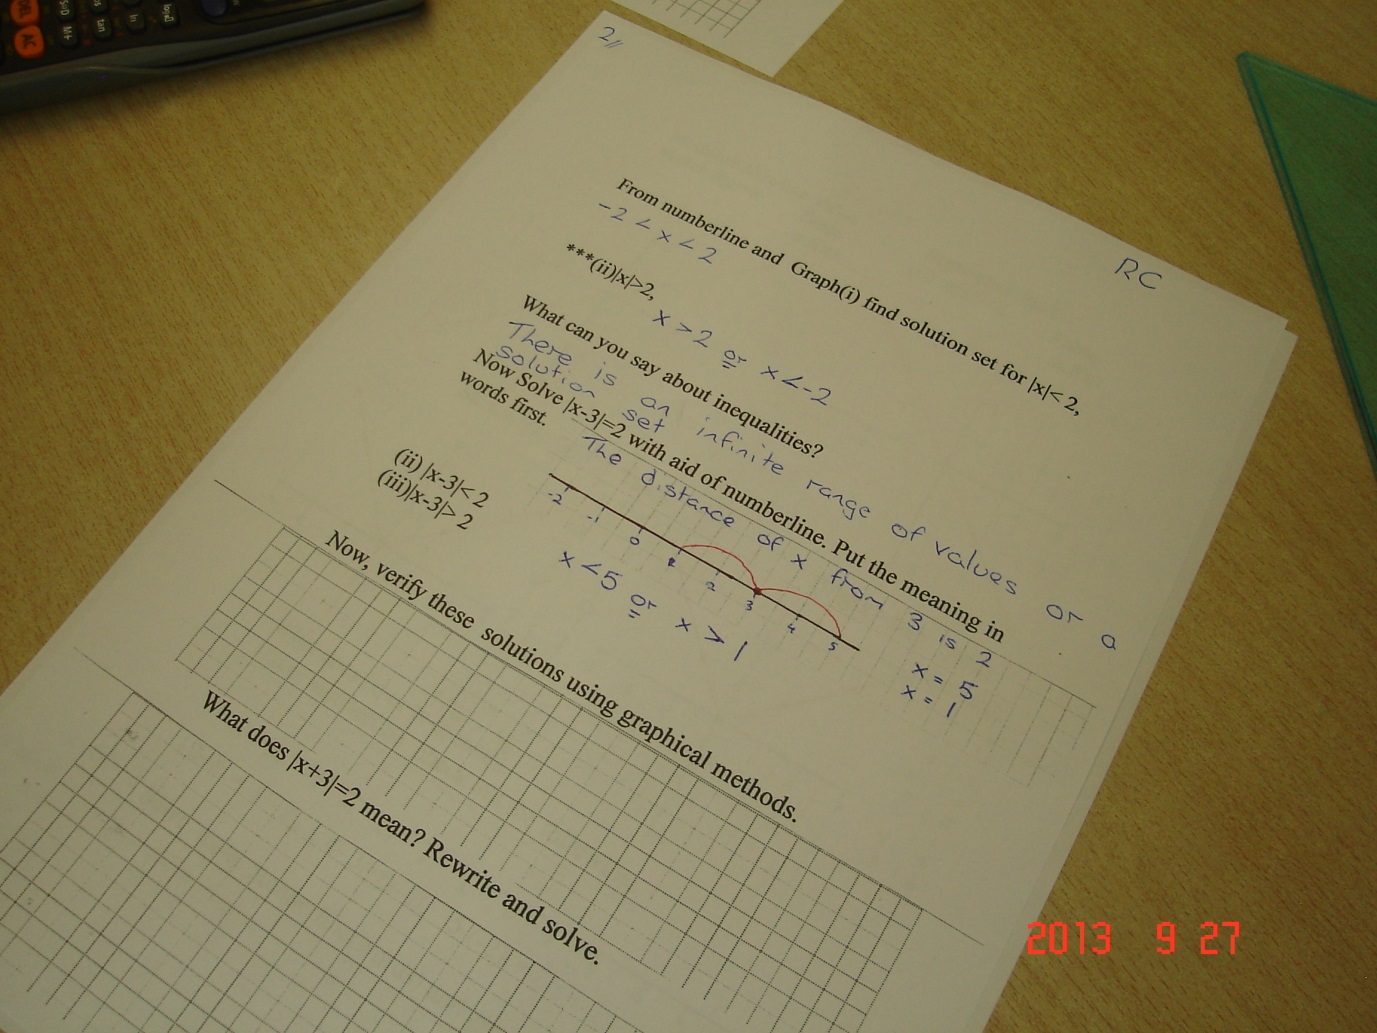 2//
RC
From numberline and Graph(i) find solution set for |x|< 2,
-2 < x < 2
***(ii)|x|>2,
x > 2 or x < -2
What can you say about inequalities?
There is an infinite range of values or a
solution set
Now Solve |x-3|=2 with aid of numberline. Put the meaning in
words first.
The distance of x from 3 is 2
x = 5
x = 1
(ii) |x-3|< 2
(iii)|x-3|> 2
-2 -1 0 1 2 3 4 5
x < 5 or x > 1
Now, verify these solutions using graphical methods.
What does |x+3|=2 mean? Rewrite and solve.
AC
M+
tan
ln
2013 9 27